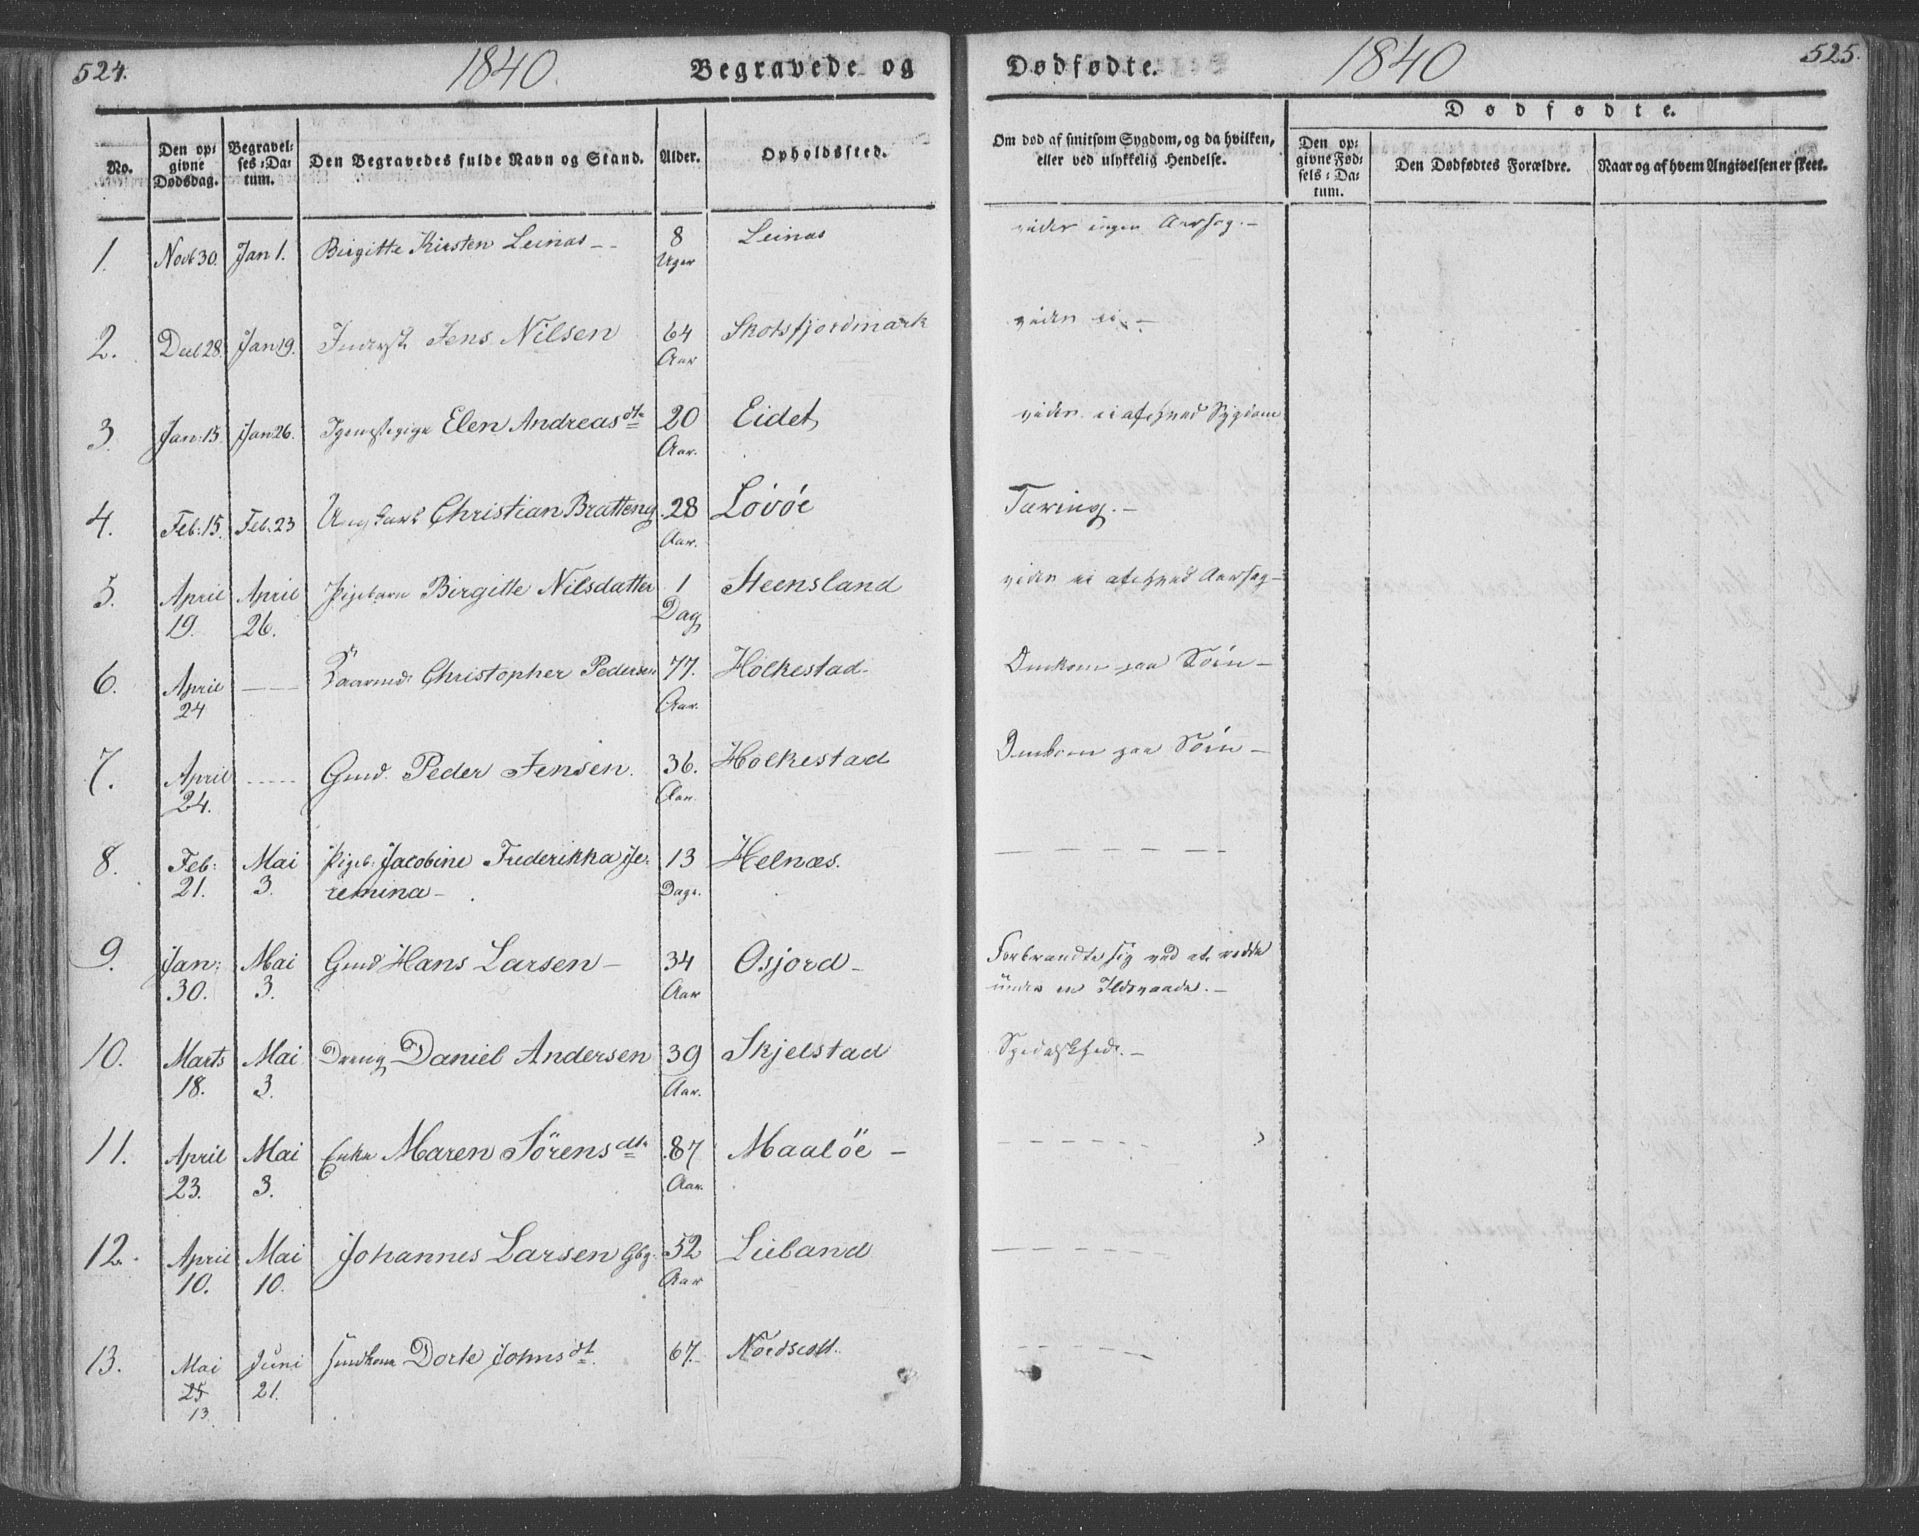 524.
1840.
Begravede og
No.
Den opgivne Dødsdag.
Begravelses-Datum.
Den Begravedes fulde Navn og Stand.
Alder.
Opholdssted.
1. Novb 30. Jan 1. Birgitte Kirsten Leinas -- 8 Uger Leinas
2. Decb 28. Jan 19. Inderst Jens Nilsen 64 Aar Skotsfjordmark
3. Jan: 15 Jan 26. Elen Andreasdtr 20 Aar. Eidet
4. Feb: 15. Feb: 23 Ungkarl Christian Bratteng 28 Aar. Lovöe
5. April 19. April 26. Pigebarn Birgitte Nilsdatter 1 Dag Steensland
6. April 24 —— Christopher Pedersen 77. Aar. Holkestad-
7. April 24. ---- Gmd. Peder Jensen. 36. Aar Holkestad
8. Feb: 21. Mai 3. Pigeb: Jacobine Frederikka Je-
remina- 13 Dage. Helnæs.
9. Jan: 30. Mai 3. Gmd Hans Larsen - 34 Aar Osjord-
10. Marts 18. Mai 3. Dreng Daniel Andersen 39 Aar. Skjelstad
11. April 23. Mai 3. Enke Maren Sörensdtr 87 Aar. Maalöe -
12. April 10. Mai 10. Johannes Larsen Gbg. 52 Aar Lieland
13. Mai 25 13 Juni 21. Dorte Johnsdt. 67. Nordscott.
Dødfødte.
1840
525.
Om død af smitsom Sygdom, og da hvilken,
eller ved ulykkelig Hendelse.
Dødfødte.
Den opgivne Fødsels-Datum.
Den Dødfødtes Forældre.
Naar og af hvem Angivelsen er skeet.
viden ingen Aarsag. -
viden ei. -
viden ei af hvad Sygdom
Tæring. -
viden ei af hvad Aarsag -
Omkom paa Söen -
Omkom paa Söen -
Forbrændte sig ved at redde
under en Ildsvaade. -
Spedalskhed. -